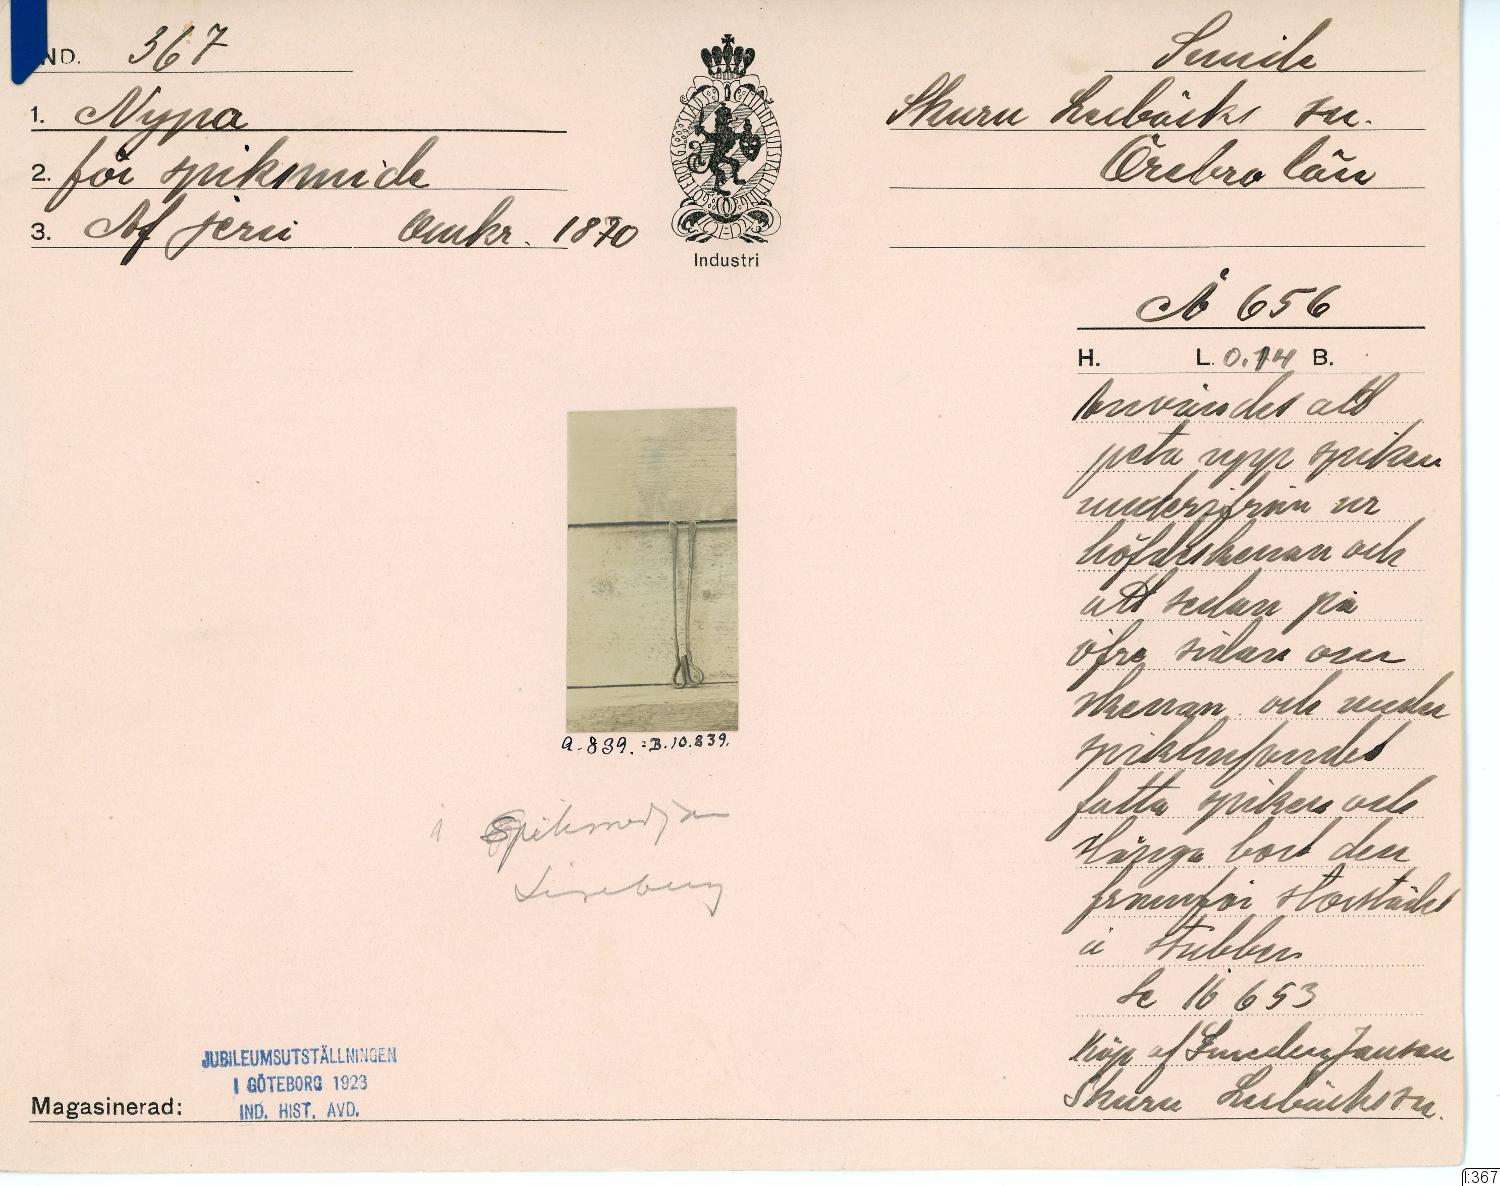 IND. 367
1. Nypa
2. för spiksmide
3. Af jern Omkr. 1870
GÖTEBORGS STADS MINNESUTSTÄLLNING
Industri
Smide
Skuru Lerbäcks sn.
Örebro län
Å 656
H. L. 0.14 B.
Användes att
peta upp spiken
underifrån ur
höfdskenan och
att sedan på
öfre sidan om
skenan och under
fatta spiken och
slänga bort den
framför storstädet
å stubben
Se Å 653
Köp af Smeden Jansson
Skuru Lerbäcks sn.
a. 839. :B.10.839.
i Spiksmedjan
Liseberg
JUBILEUMSUTSTÄLLNINGEN
I GÖTEBORG 1923
IND. HIST. AVD.
Magasinerad:
I:367